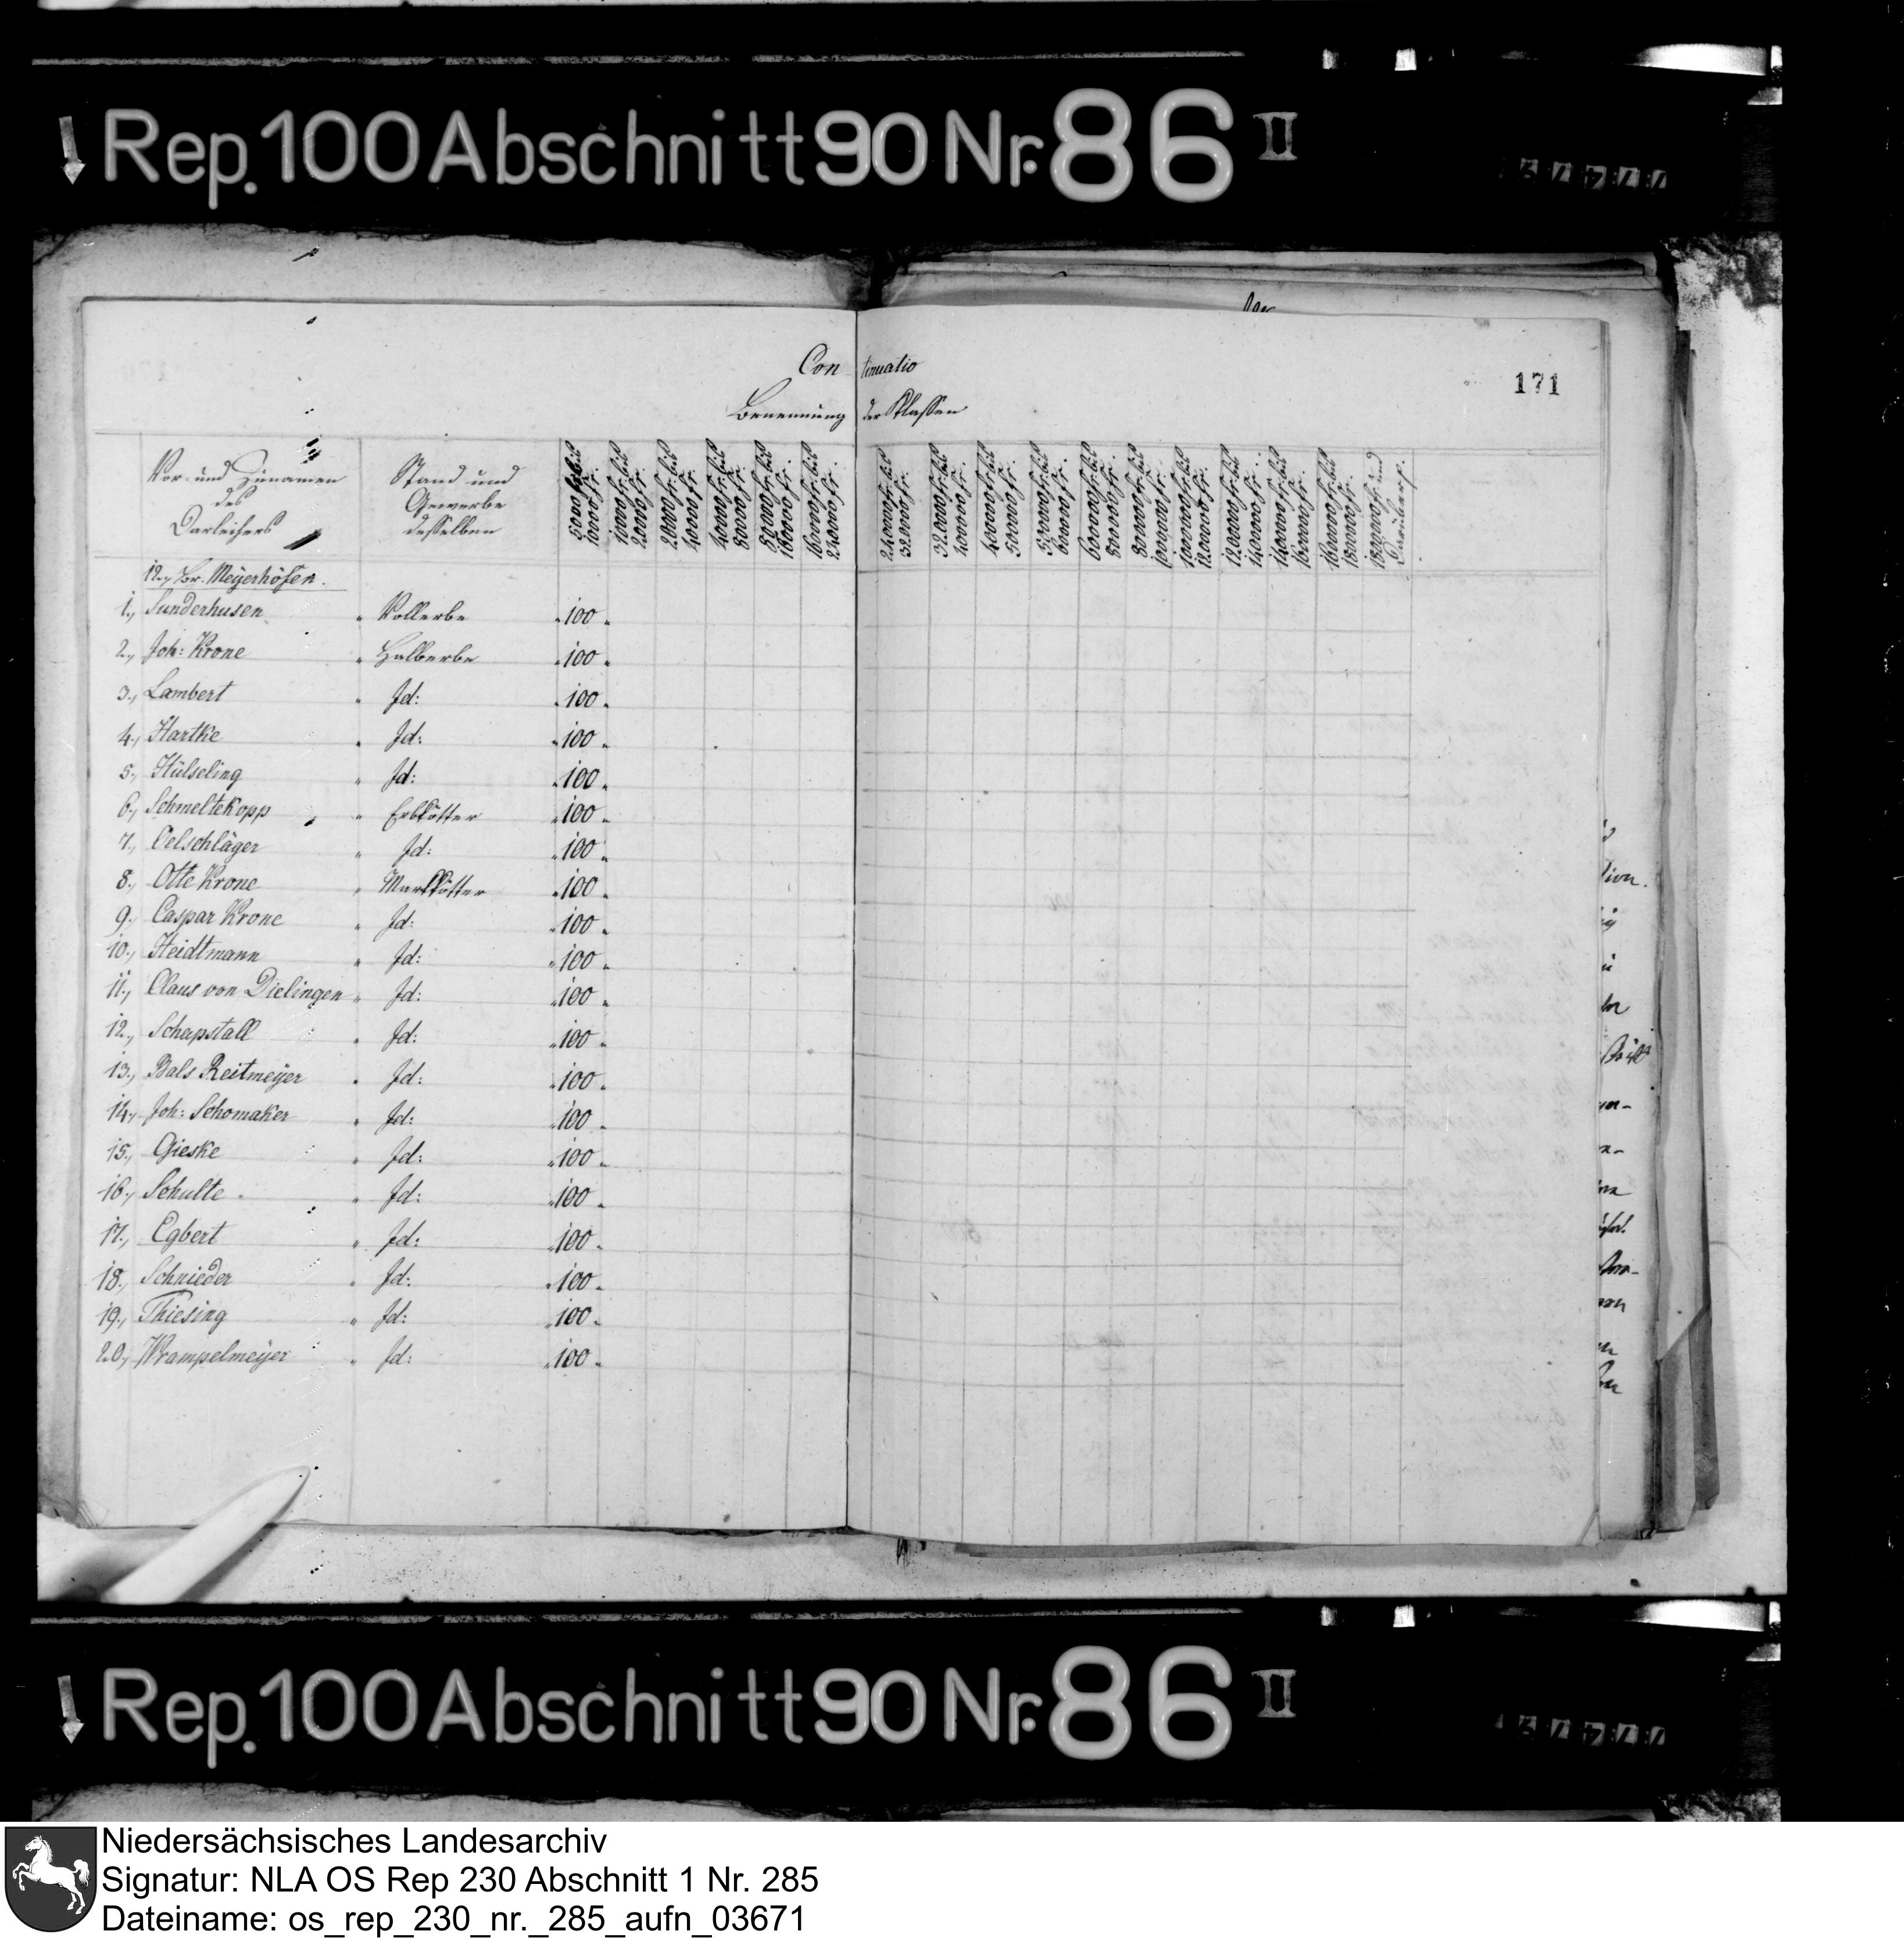 Rep. 100 Abschnitt 90 Nr. 86 II
Continuatio
171
Benennung der Klassen
Vor- und Zunamen des Darleihers
Stand und Gewerbe desselben
500 fr. bis 1000 fr.
1000 fr. bis 2000 fr.
2000 fr. bis 4000 fr.
4000 fr. bis 8000 fr.
8000 fr. bis 16000 fr.
16000 fr. bis 24000 fr.
24000 fr. bis 32000 fr.
32000 fr. bis 40000 fr.
40000 fr. bis 50000 fr.
50000 fr. bis 60000 fr.
60000 fr. bis 80000 fr.
80000 fr. bis 100000 fr.
100000 fr. bis 120000 fr.
120000 fr. bis 140000 fr.
140000 fr. bis 160000 fr.
160000 fr. bis 180000 fr.
180000 fr. und darüber
12., Br. Meÿerhöfen.
1., Sunderhusen " Vollerbe " 100 "
2., Joh: Krone " Halberbe " 100 "
3., Lambert " Id: " 100 "
4., Hartke " Id: " 100 "
5., Hülseling " Id: " 100 "
6., Schmeltekopp " Erbkötter " 100 "
7., Oelschläger " Id: " 100 "
8., Otte Krone " Markkötter " 100 "
9., Caspar Krone " Id: " 100 "
10., Heidtmann " Id: " 100 "
11., Claus von Dielingen " Id: " 100 "
12., Schapstall " Id: " 100 "
13., Bals Reitmeÿer " Id: " 100 "
14., Joh: Schomaker " Id: " 100 "
15., Gieske " Id: " 100 "
16., Schulte " Id: " 100 "
17., Egbert " Id: " 100 "
18., Schnieder " Id: " 100 "
19., Thiesing " Id: " 100 "
20., Wrampelmeÿer " Id: " 100 "
Rep. 100 Abschnitt 90 Nr. 86 II
Niedersächsisches Landesarchiv
Signatur: NLA OS Rep 230 Abschnitt 1 Nr. 285
Dateiname: os_rep_230_nr._285_aufn_03671